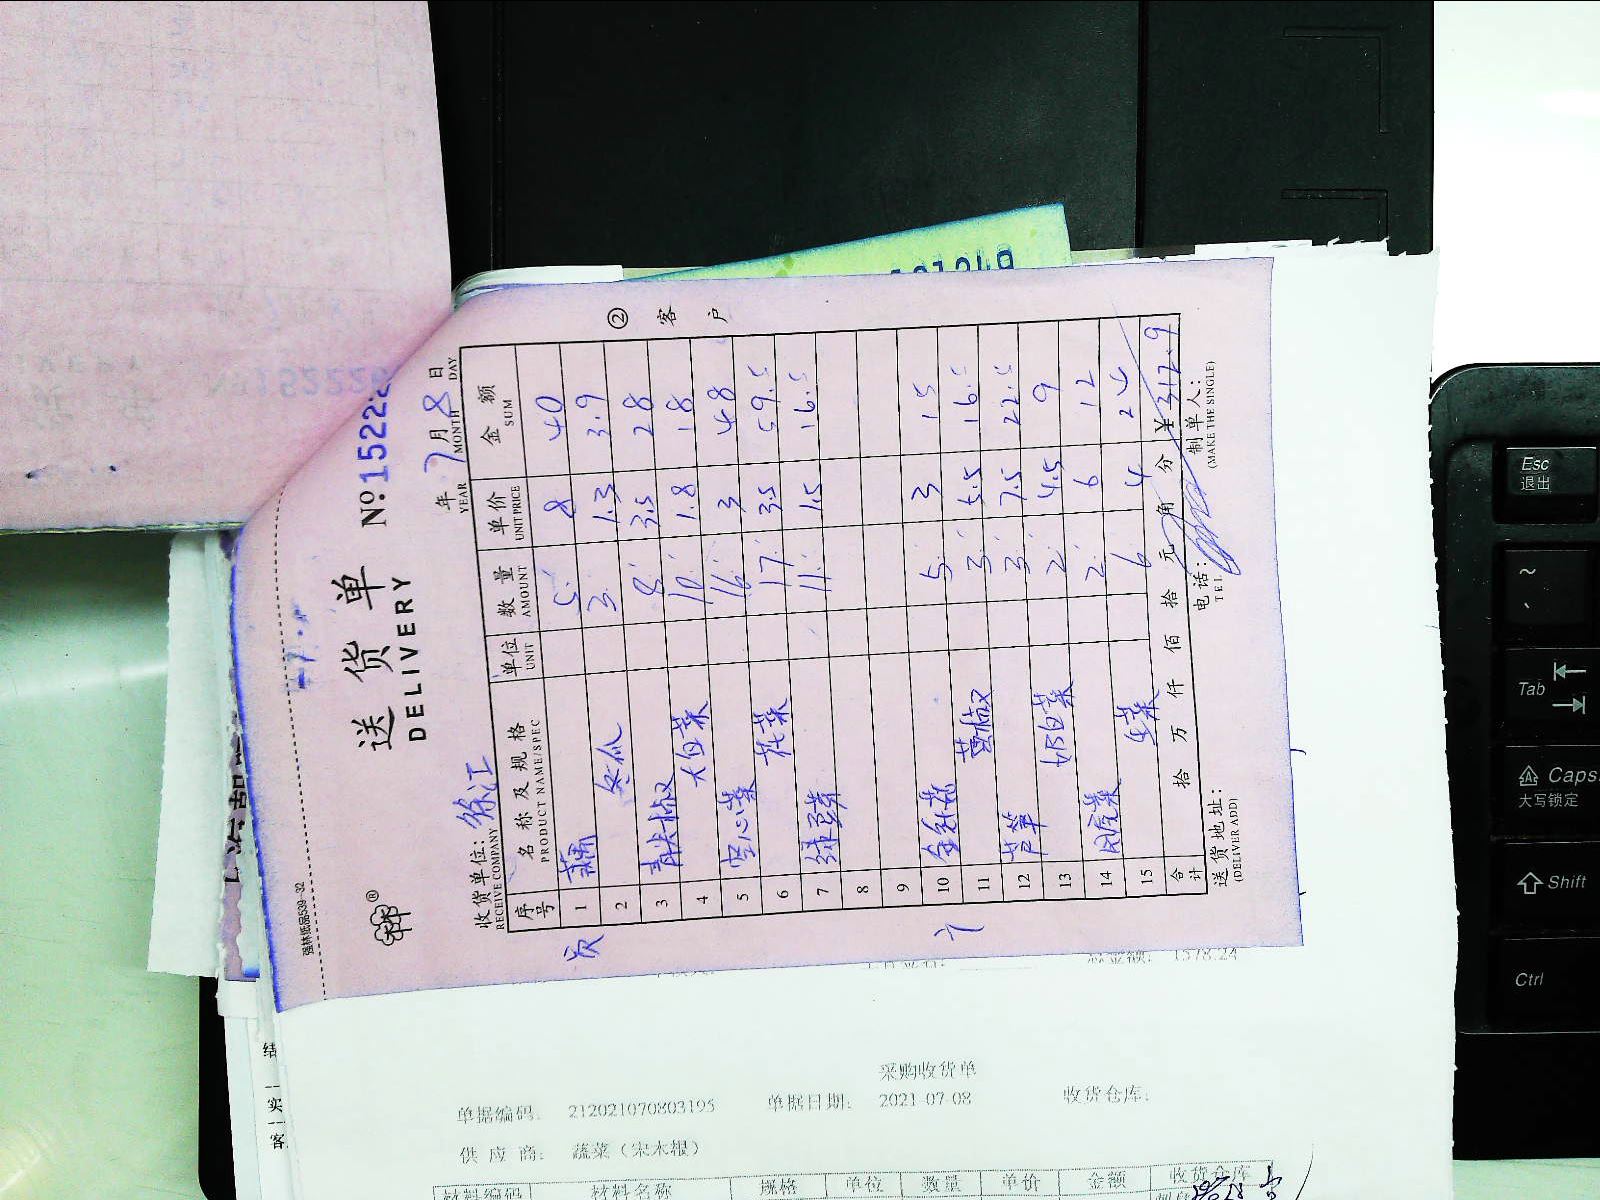 强林纸品539-32
送货单
DELIVERY
№15222
7月8日
年 YEAR MONTH DAY
收货单位：徐汇
RECEIVE COMPANY
② 客户
序号 名称及规格 PRODUCT NAME/SPEC 单位 UNIT 数量 AMOUNT 单价 UNIT PRICE 金额 SUM
1 5 8 40
2 冬瓜 3 1.3 3.9
3 青尖椒 8 3.5 28
4 大白菜 10 1.8 18
5 空心菜 16 3 48
6 花菜 17 3.5 59.5
7 绿豆芽 11 1.5 16.5
8
9
10 金针菇 5 3 15
11 3 5.5 16.5
12 芦笋 3 7.5 22.5
13 奶白菜 2 4.5 9
14 2 6 12
15 生菜 6 4 24
合计 拾 万 仟 佰 拾 元 角 分 ¥312.9
送货地址：
(DELIVER ADD)
电话：
TEL
制单人：
(MAKE THE SINGLE)
采购收货单
单据编码： 212021070803195 单据日期： 2021-07-08 收货仓库：
供应商： 蔬菜（宋木根）
材料编码 材料名称 规格 单位 数量 单价 金额 收货仓库
1578.24
结
实
客
Esc
退出
~
Tab
Caps
大写锁定
Shift
Ctrl